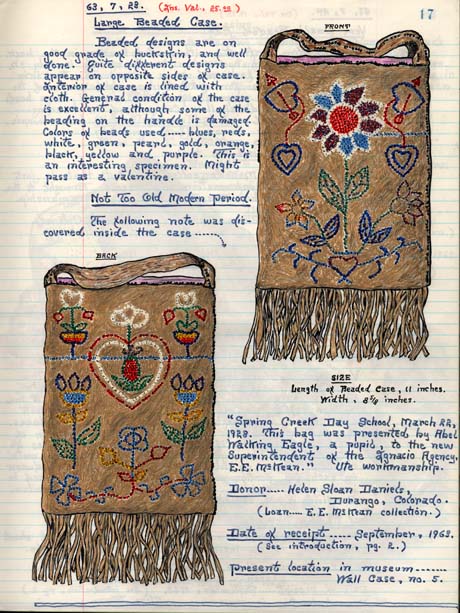 63, 7, 28. (Ins. Val., 25.00)
17
Large Beaded Case.
Beaded designs are on
good grade of buckskin, and well
done. Quite different designs
appear on opposite sides of case.
Interior of case is lined with
cloth. General condition of the case
is excellent, although some of the
beading on the handle is damaged.
Colors of beads used.....blues, reds,
white, green, pearl, gold, orange,
black, yellow and purple. This is
an interesting specimen. Might
pass as a valentine.
Not Too Old Modern Period.
The following note was dis-
covered inside the case.....
FRONT
BACK
SIZE
Length of Beaded Case, 11 inches.
Width, 8 3/4 inches.
"Spring Creek Day School, March 22,
1923. This bag was presented by Abel
Walking Eagle, a pupil, to the new
Superintendent of the Ignacio Agency,
E.E. McKean." Ute workmanship.
Donor.... Helen Sloan Daniels,
Durango, Colorado.
(Loan.... E.E. McKean collection.)
Date of receipt ..... September, 1963.
(See introduction, pg. 2.)
Present location in museum.......
Wall Case, no. 5.